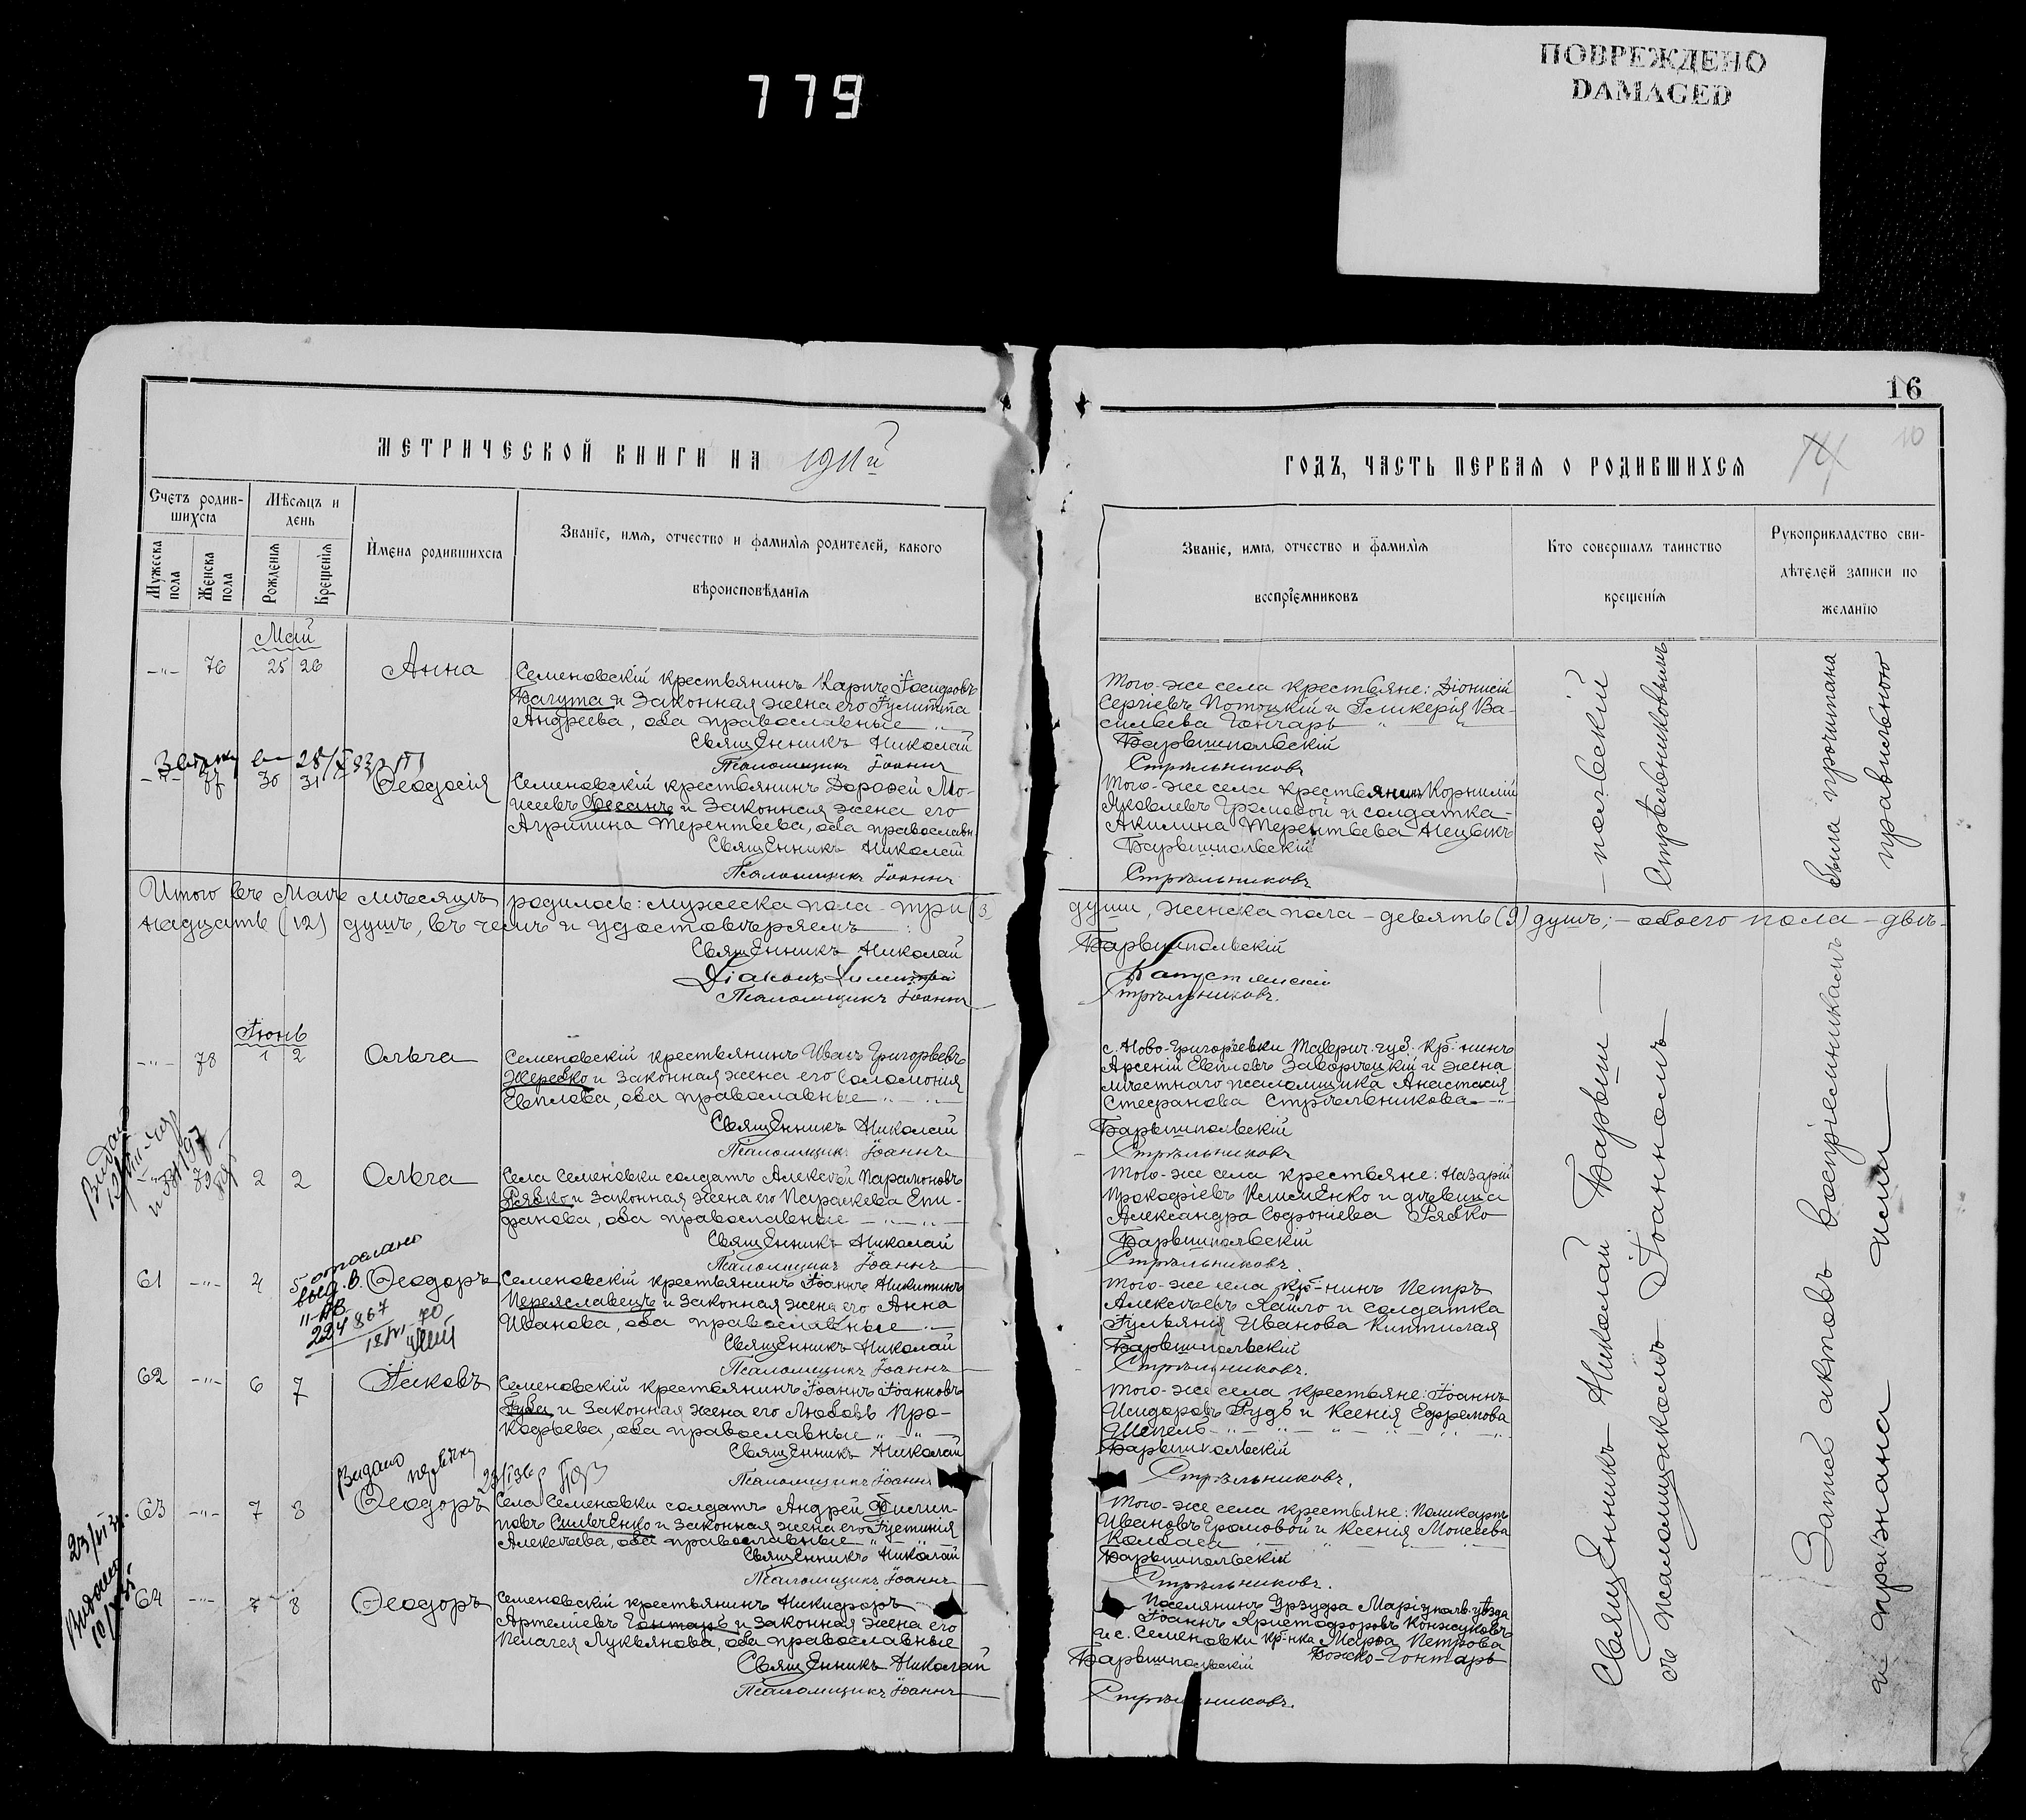 779
ПОВРЕЖДЕНО
DAMAGED
16
10
МЕТРИЧЕСКОЙ КНИГИ НА 1911й
ГОДЪ, ЧАСТЬ ПЕРВАЯ О РОДИВШИХСЯ
Счетъ родив-
шихся
Мѣсяцъ и
день
Мужеска пола
Женска пола
Рожденія
Крещенія
Имена родившихся
Званіе, имя, отчество и фамилія родителей, какого
вѣроисповѣданія
Званіе, имя, отчество и фамилія
воспріемниковъ
Кто совершалъ таинство
крещенія
Рукоприкладство сви-
дѣтелей записи по
желанію
Май
76 25 26 Анна
Семеновскій крестьянинъ Карпъ Іосифовъ
Багута и законная жена его Іулитта
Андреева, оба православные
Священникъ Николай
Псаломщикъ Іоаннъ
Того-же села крестьяне: Діонисій
Сергіевъ Потоцкій и Гликерія Ва-
сильева Гончаръ
Барышпольскій
Стрѣльниковъ
77 30 31 Ѳеодосія
Семеновскій крестьянинъ Дороѳей Мо-
исеевъ Фесанъ и законная жена его
Агрипина Терентьева, оба православн
Священникъ Николай
Псаломщикъ Іоаннъ
Того-же села крестьянинъ Корнилій
Яковлевъ Громовой и солдатка
Акилина Терентьева
Барышпольскій
Стрѣльниковъ
Итого въ Маѣ мѣсяцѣ родилось: мужеска пола - три (3) души, женска пола - девять (9) душъ; - обоего пола - двѣ-
надцать (12) душъ, въ чемъ и удостовѣряемъ
Священникъ Николай Барышпольскій
Діаконъ Димитрій Капустянскій
Псаломщикъ Іоаннъ Стрѣльниковъ.
Іюнь
78 1 2 Ольга
Семеновскій крестьянинъ Иванъ Григорьевъ
Жеребко и законная жена его Соломонія
Евплова, оба православные
Священникъ Николай
Псаломщикъ Іоаннъ
с. Ново-Григорьевки Таврич. губ. кр-нинъ
Арсеній Евпловъ Заворицкій и жена
мѣстнаго псаломщика Анастасія
Стефанова Стрѣльникова
Барышпольскій
Стрѣльниковъ
79 2 2 Ольга
Села Семеновки солдатъ Алексѣй Парамоновъ
Рябко и законная жена его Параскева Епи-
фанова, оба православные
Священникъ Николай
Псаломщикъ Іоаннъ
Того-же села крестьяне: Назарій
Прокофіевъ Клименко и дѣвица
Александра Софроніева Рябко
Барышпольскій
Стрѣльниковъ.
61 4 5 Ѳеодоръ
отослано
224867
18/VI-70
Семеновскій крестьянинъ Іоаннъ Никитинъ
Переяславецъ и законная жена его Анна
Иванова, оба православные
Священникъ Николай
Псаломщикъ Іоаннъ
Того-же села кр-нинъ Петръ
Алексѣевъ Яайло и солдатка
Іуліанія Иванова Киптилая
Барышпольскій
Стрѣльниковъ.
62 6 7 Іаковъ
Семеновскій крестьянинъ Іоаннъ Іоанновъ
Губа и законная жена его Любовь Про-
кофьева, оба православные
Священникъ Николай
Псаломщикъ Іоаннъ
Того-же села крестьяне: Іоаннъ
Исидоровъ Рудь и Ксенія Ефремова
Шепель
Барышпольскій
Стрѣльниковъ.
63 7 8 Ѳеодоръ
Села Семеновки солдатъ Андрей Филип-
повъ Сильченко и законная жена его Іустинія
Алексѣева, оба православные
Священникъ Николай
Псаломщикъ Іоаннъ
Того-же села крестьяне: Поликарпъ
Ивановъ Громовой и Ксенія Моисеева
Колбаса
Барышпольскій
Стрѣльниковъ.
64 7 8 Ѳеодоръ
Семеновскій крестьянинъ Никифоръ
Артеміевъ Гонтарь и законная жена его
Пелагея Лукьянова, оба православные
Священникъ Николай
Псаломщикъ Іоаннъ
Поселянинъ Урзуфа Маріупольск. уѣзда
Іоаннъ Христофоровъ Конжуковъ
и с. Семеновки кр-нка Марѳа Петрова
Божко-Гонтарь
Барышпольскій
Стрѣльниковъ.
Священникъ Николай Барышпольскій
съ псаломщикомъ Іоанномъ Стрѣльниковымъ
Запись актовъ воспріемникамъ была прочитана
и признана ими правильною